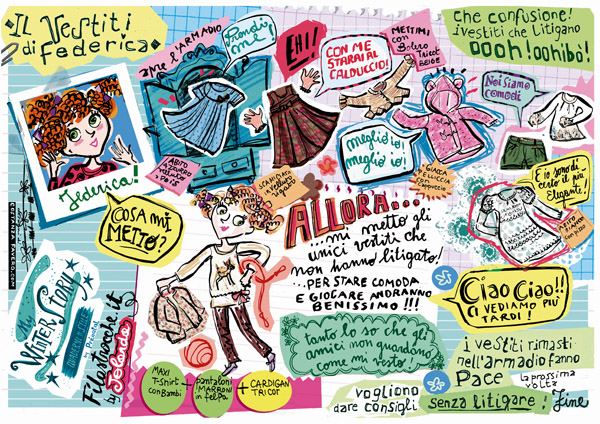 Il Vestiti
di Federica
apre l'ARMADIO
Prendi
me!
EHI!
CON ME
STARAI AL
CALDUCCIO!
METTIMI
con
Bolero
Tricot
BEIGE
che confusione!
i vestiti che Litigano
OOOh! oohibò!
Noi siamo
comodi
meglio io!
meglio io!
GIACCA
PELLICCIA
con
Cappuccio
E io sono di
certo il più
elegante!
ABITO
a
POIS
Federica!
COSA mi
METTO?
COSTANZA FAVERO.COM
ALLORA...
...mi metto gli
unici vestiti che
non hanno litigato!
...PER STARE COMODA
E GIOCARE ANDRANNO
BENISSIMO!!!
tanto lo so che gli
amici non guardano
come mi vesto!
Ciao Ciao!!
CI VEDIAMO PIU'
TARDI!
My
WINTER STORY
Filastrocche.it
by Jolanda
MAXI
T-shirt
con Bambi
+
pantaloni
MARRONI
in felpa
+
CARDIGAN
TRICOT
i vestiti rimasti
nell'armadio fanno
Pace
la prossima
volta
vogliono
dare consigli
senza litigare!
Fine